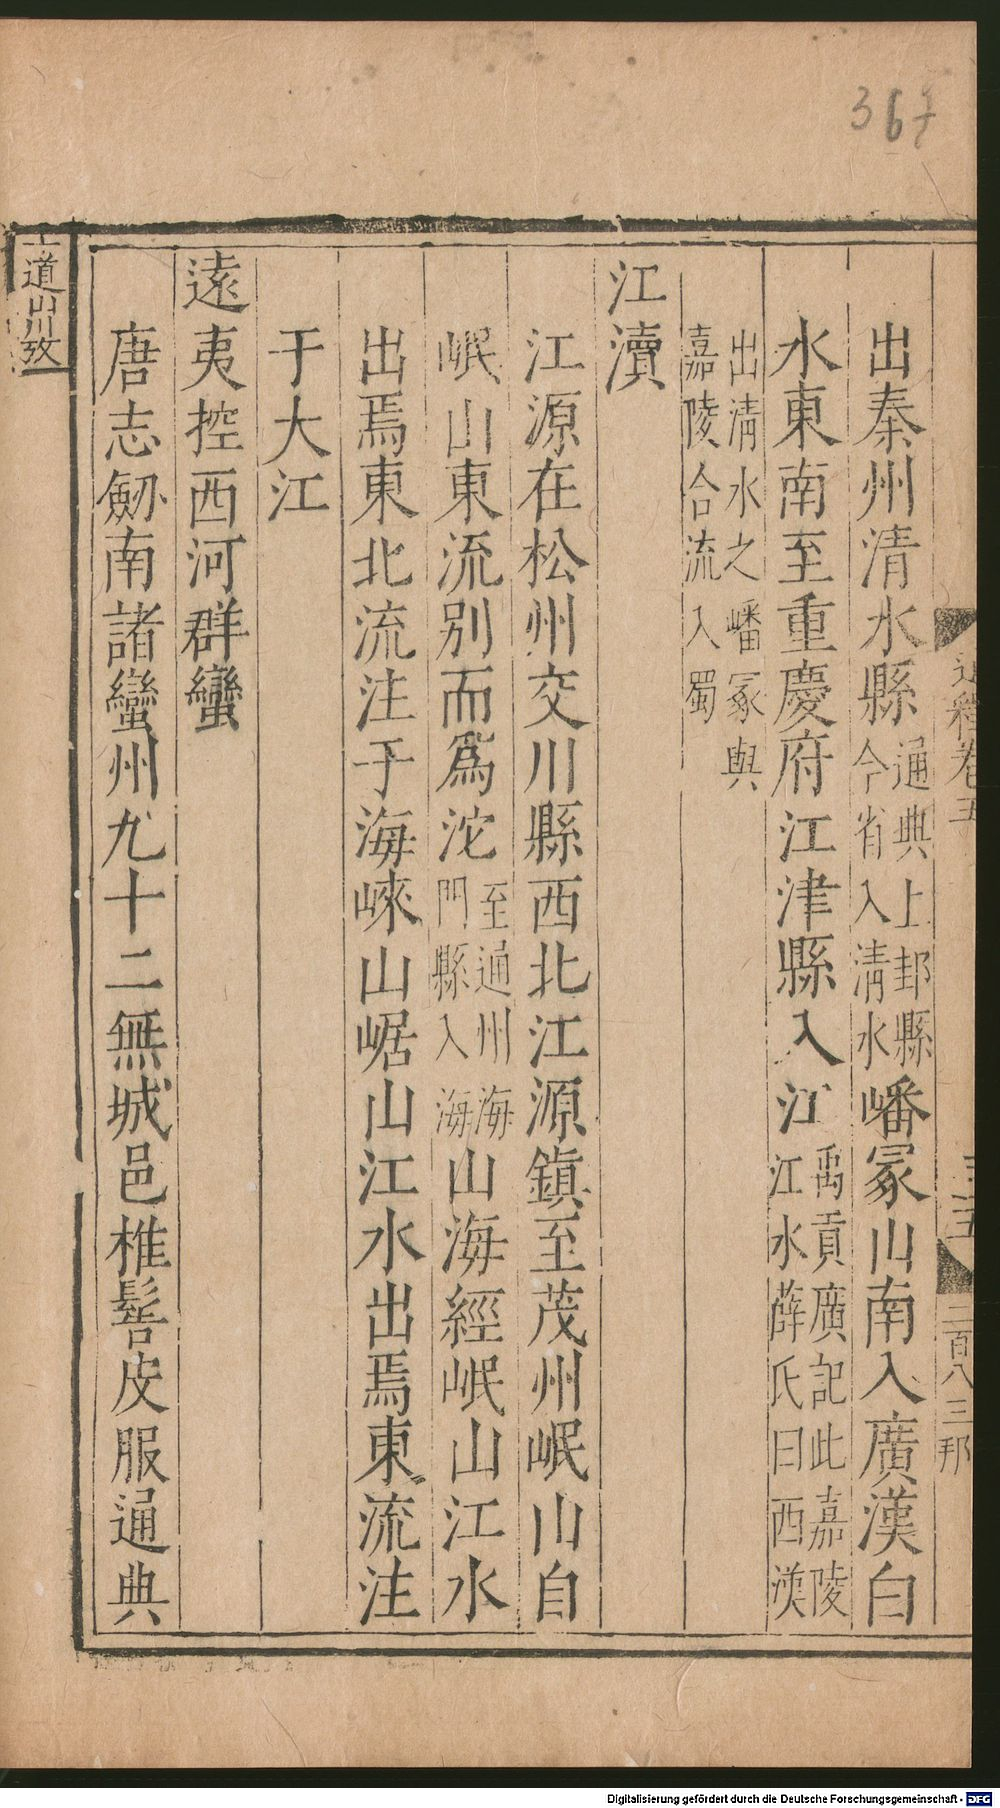 367
通釋卷五
三五
二百八三
出秦州清水縣通典上邽縣今省入清水嶓冢山南入廣漢白
水東南至重慶府江津縣入江禹貢廣記此嘉陵江水薛氏曰西漢
出清水之嶓冢與嘉陵合流入蜀
江瀆
江源在松州交川縣西北江源鎮至茂州岷山自
岷山東流別而爲沱至通州海門縣入海山海經岷山江水
出焉東北流注于海崍山崌山江水出焉東流注
于大江
遠夷控西河群蠻
唐志劒南諸蠻州九十二無城邑椎髻皮服通典
十道山川攷
Digitalisierung gefördert durch die Deutsche Forschungsgemeinschaft - DFG